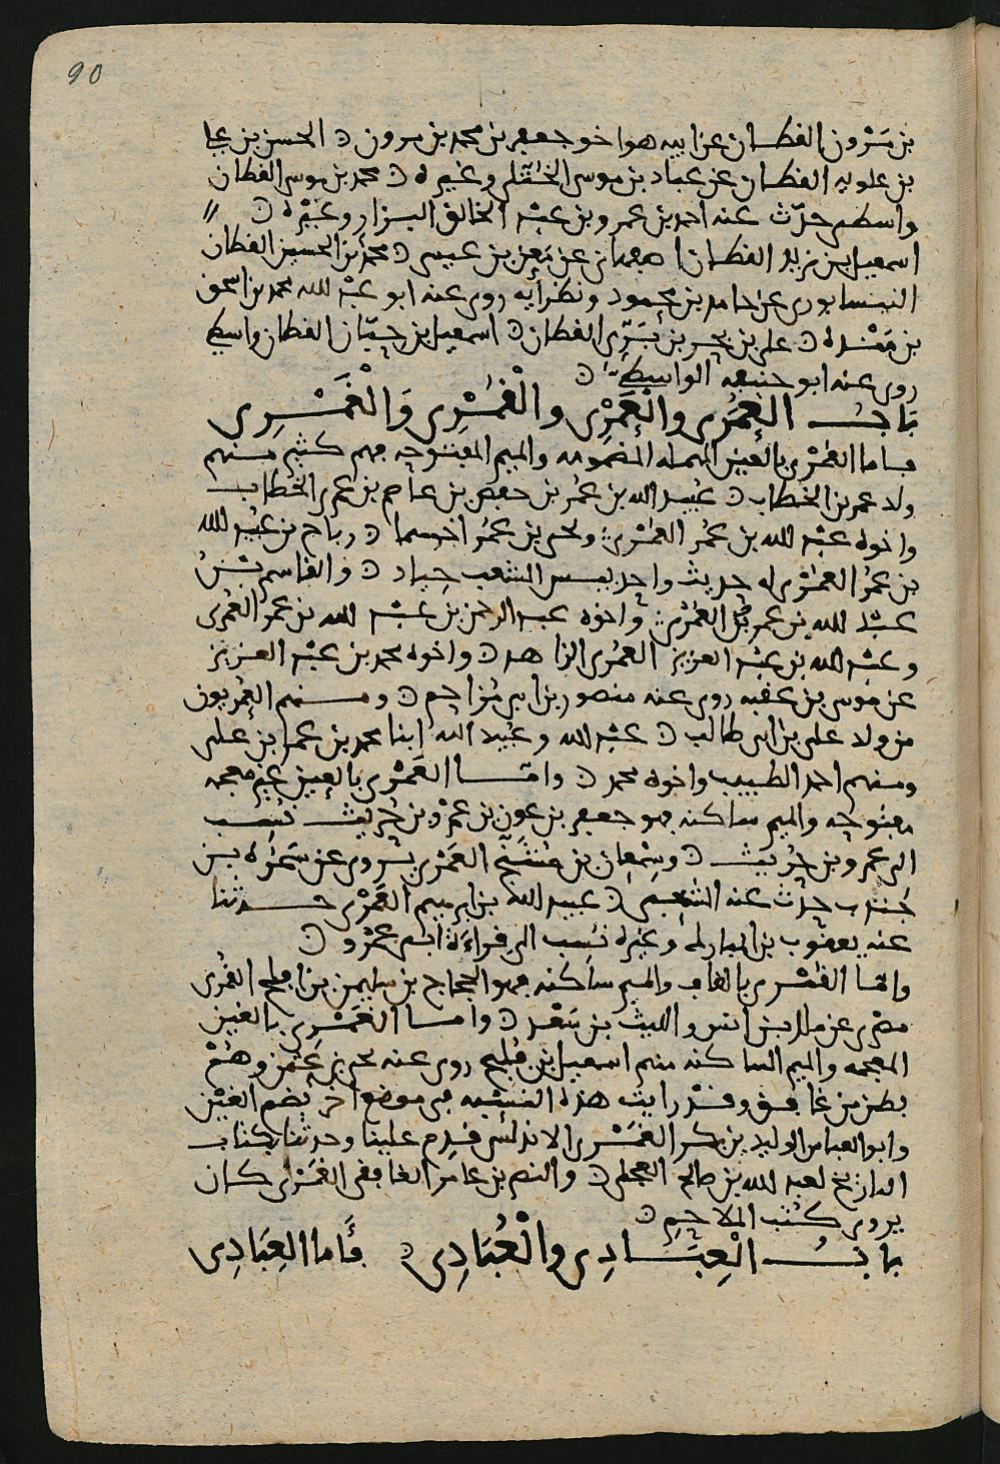 90
بن مسرون القطان عن ابيه هو اخو جعفر بن محمد بن مسرون الحسن بن علي
بن علويه القطان عن عباد بن موسى الختلي وغيره محمد بن موسى القطان
واسطي حدث عنه احمد بن عمرو بن عبد الخالق البزار وغيره
اسمعيل بن يزيد القطان اصبهاني عن معن بن عيسى محمد بن الحسين القطان
النيسابوري عن حامد بن محمود ونظرايه روى عنه ابو عبد الله محمد بن اسحق
بن منده علي بن بحر بن بري القطان اسمعيل بن حيان القطان واسطي
روى عنه ابو حنيفه الواسطي
باب العمري والعمري والقمري والغمري
فاما العمري بالعين المهمله المضمومه والميم المفتوحه فهم كثير منهم
ولد عمر بن الخطاب عبيد الله بن عمر بن حفص بن عاصم بن عمر بن الخطاب
واخوه عبد الله بن عمر العمري ويحيى بن عمر اخوهما رباح بن عبيد الله
بن عمر العمري له حديث واحد بيس الشعب جياد والقاسم بن
عبد الله بن عمر العمري واخوه عبد الرحمن بن عبد الله بن عمر العمري
وعبد الله بن عبد العزيز العمري الزاهد واخوه محمد بن عبد العزيز
عن موسى بن عقبه روى عنه منصور بن ابي مزاحم ومنهم العمريون
من ولد علي بن ابي طالب عبد الله وعبيد الله ابنا محمد بن عمر بن علي
ومنهم احمد الطبيب واخوه محمد واما العمري بالعين غير معجمه
مفتوحه والميم ساكنه فهو جعفر بن عون بن عمرو بن حريث نسب
الى عمرو بن حريث وسمعان بن مشنج العمري يروي عن سمره بن
جندب حدث عنه الشعبي عبيد الله بن ابرهيم العمري حدثنا
عنه يعقوب بن المبارك وغيره نسب الى قراءة ابي عمرو
واما القمري بالقاف والميم ساكنه فهو الحجاج بن سليمن بن افلح القمري
مصري عن ملك بن انس والليث بن سعد واما الغمري بالغين
المعجمه والميم الساكنه منهم اسمعيل بن فليح روى عنه يحيى بن عثمن وهم
بطن من غافق وقد رايت هذه النسبه في موضع اخر بضم الغين
وابو العباس الوليد بن بكر الغمري الاندلسي قدم علينا وحدثنا بكتاب
التاريخ لعبد الله بن صالح العجلي والنضر بن عامر الغافقي الغمري كان
يروي كتب الملاحم
باب العبادي والعبادي فاما العبادي